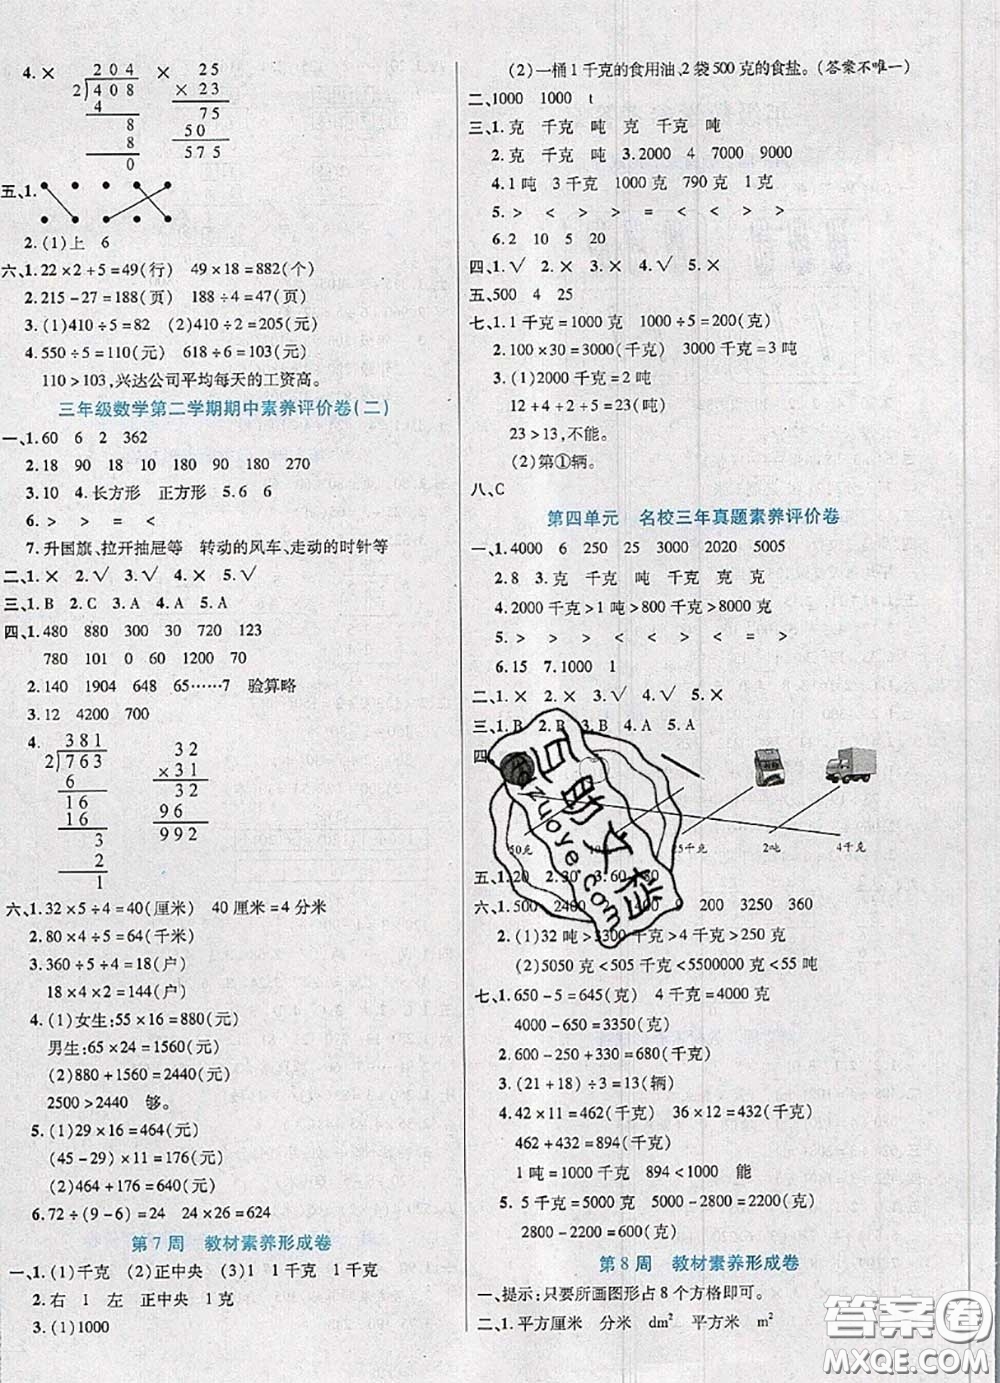 4.×
204
2)408
4
8
8
0
25
×23
75
50
575
五、1.
2.(1)上 6
六、1.22×2+5=49(行) 49×18=882(个)
2.215-27=188(页) 188÷4=47(页)
3.(1)410÷5=82 (2)410÷2=205(元)
4.550÷5=110(元) 618÷6=103(元)
110>103,兴达公司平均每天的工资高。
三年级数学第二学期期中素养评价卷(二)
一、1.60 6 2 362
2.18 90 18 10 180 90 180 270
3.10 4.长方形 正方形 5.6 6
6.> > < <
7.升国旗、拉开抽屉等 转动的风车、走动的时针等
二、1.× 2.√ 3.√ 4.× 5.√
三、1.B 2.C 3.A 4.A 5.A
四、1.480 880 300 30 720 123
780 101 0 60 1200 70
2.140 1904 648 65……7 验算略
3.12 4200 700
4.
381
2)763
6
16
16
3
2
1
32
×31
32
96
992
六、1.32×5÷4=40(厘米) 40厘米=4分米
2.80×4÷5=64(千米)
3.360÷5÷4=18(户)
18×4×2=144(户)
4.(1)女生:55×16=880(元)
男生:65×24=1560(元)
(2)880+1560=2440(元)
2500>2440 够。
5.(1)29×16=464(元)
(45-29)×11=176(元)
(2)464+176=640(元)
6.72÷(9-6)=24 24×26=624
第7周 教材素养形成卷
一、1.(1)千克 (2)正中央 (3)1 1千克 1千克
2.右 1 左 正中央 1克
3.(1)1000
(2)一桶1千克的食用油、2袋500克的食盐。(答案不唯一)
二、1000 1000 t
三、1.克 千克 吨 克 千克 吨
2.克 千克 吨 3.2000 4 7000 9000
4.1吨 3千克 1000克 790克 1克
5.> > > > = < < >
6.2 10 5 20
四、1.√ 2.× 3.× 4.√ 5.×
五、500 4 25
七、1.1千克=1000克 1000÷5=200(克)
2.100×30=3000(千克) 3000千克=3吨
3.(1)2000千克=2吨
12+4+5+2=23(吨)
23>13,不能。
(2)第①辆。
八、C
第四单元 名校三年真题素养评价卷
一、1.4000 6 250 25 3000 2020 5005
2.8 3.克 千克 吨 千克 克 克
4.2000千克>1吨>800千克>8000克
5.> > > < < > < = >
6.15 7.1000 1
二、1.× 2.× 3.√ 4.√ 5.×
三、1.B 2.B 3.B 4.A 5.A
四
50克
25千克
2吨
4千克
五、1.20 2.30 3.60 80
六、1.500 2400 200 3250 360
2.(1)32吨>3300千克>4千克>250克
(2)5050克<505千克<5500000克<55吨
七、1.650-5=645(克) 4千克=4000克
4000-650=3350(克)
2.600-250+330=680(千克)
3.(21+18)÷3=13(辆)
4.42×11=462(千克) 36×12=432(千克)
462+432=894(千克)
1吨=1000千克 894<1000 能
5.5千克=5000克 5000-2800=2200(克)
2800-2200=600(克)
第8周 教材素养形成卷
一、提示:只要所画图形占8个方格即可。
二、1.平方厘米 分米 dm² 平方米 m²
百助文档
zuoye.com
答案圈
MXQE.COM